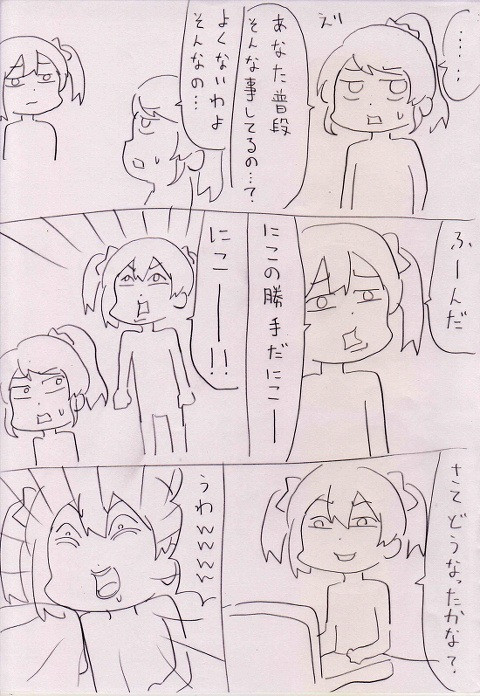 ……
え゛
あなた普段
そんな事してるの…?
よくないわよ
そんなの…
ふーんだ
にこの勝手だにこー
にこーー!!
さてどうなったかな?
うわwwww